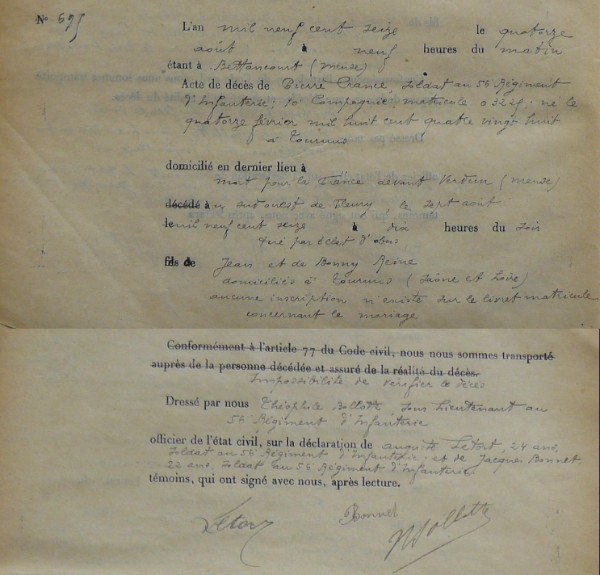 N° 695
L'an mil neuf cent seize le quatorze
août à neuf heures du matin
étant à Bettancourt (Meuse)
Acte de décès de Pierre France, soldat au 56 Régiment
d'Infanterie, 10 Compagnie matricule 0322 né le
quatorze février mil huit cent quatre vingt huit
à Tournus
domicilié en dernier lieu à
mort pour la France devant Verdun (Meuse)
décédé au sud ouest de Fleury, le sept août
mil neuf cent seize à dix heures du soir
tué par éclat d'obus
fils de Jean et de Bonny Reine
domiciliés à Tournus (Saône et Loire)
aucune inscription n'existe sur le livret matricule
concernant le mariage
Conformément à l'article 77 du Code civil, nous nous sommes transporté
auprès de la personne décédée et assuré de la réalité du décès.
Impossibilité de vérifier le décès
Dressé par nous Théophile Bollotte, Sous Lieutenant au
56 Régiment d'Infanterie
officier de l'état civil, sur la déclaration de auguste Letort, 24 ans,
soldat au 56 Régiment d'Infanterie et de Jacques Bonnet
22 ans, soldat au 56 Régiment d'Infanterie
témoins, qui ont signé avec nous, après lecture.
Letort Bonnet Bollotte